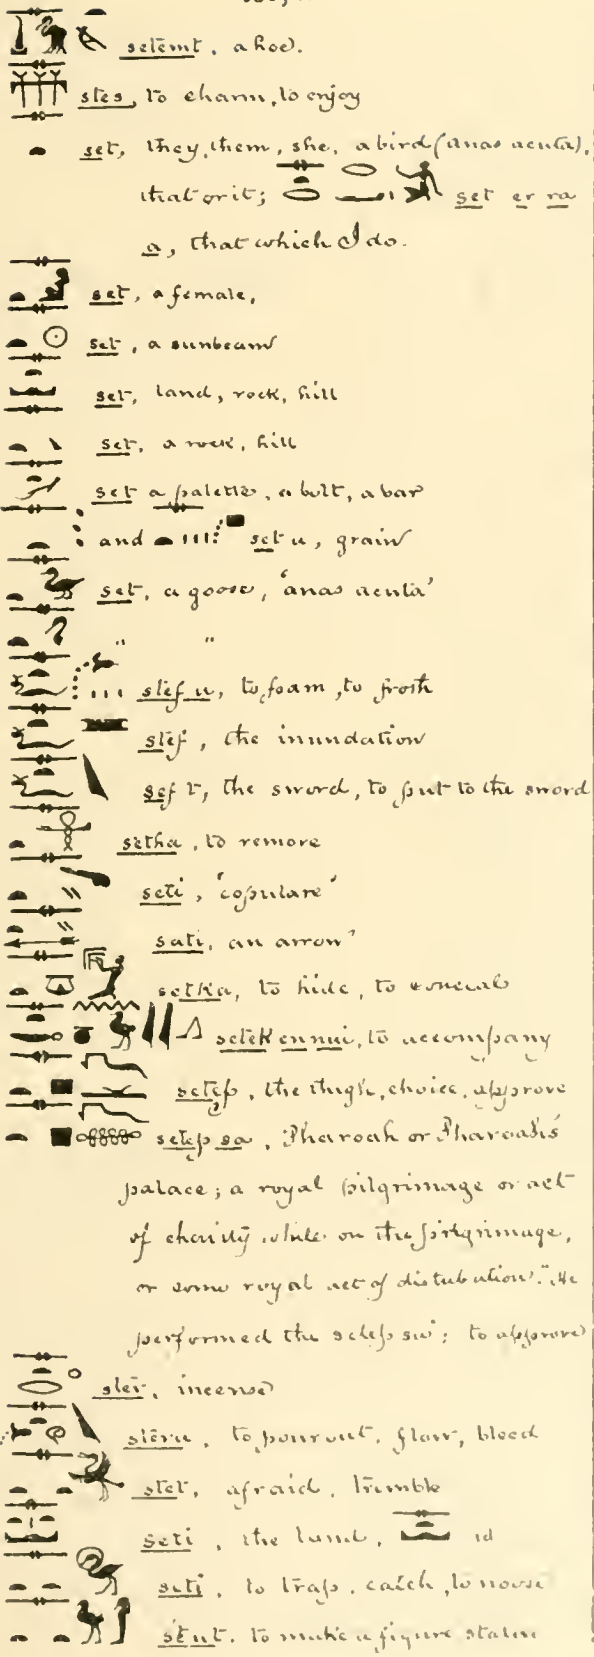 setemt, a hoe.
stes, to charm, to enjoy
set, they, them, she, a bird (anas acuta),
that or it; set er ra
a, that which I do.
set, a female,
set, a sunbeam
set, land, rock, hill
set, a rock, hill
set a palette, a bolt, a bar
and set u, grain
set, a goose, 'anas acuta'
" "
stef u, to foam, to froth
stef, the inundation
sef t, the sword, to put to the sword
setha, to remove
seti, 'copulare'
sati, an arrow
setka, to hide, to conceal
setek ennui, to accompany
setep, the thigh, choice, approve
setep sa, Pharoah or Pharoah's
palace; a royal pilgrimage or act
of charity while on the pilgrimage,
or some royal act of distubution. "He
performed the setep sa"; to approve
ster, incense
steru, to pour out, flow, bleed
stet, afraid, tremble
seti, the land, id
seti, to trap, catch, to noose
stut, to make a figure statue